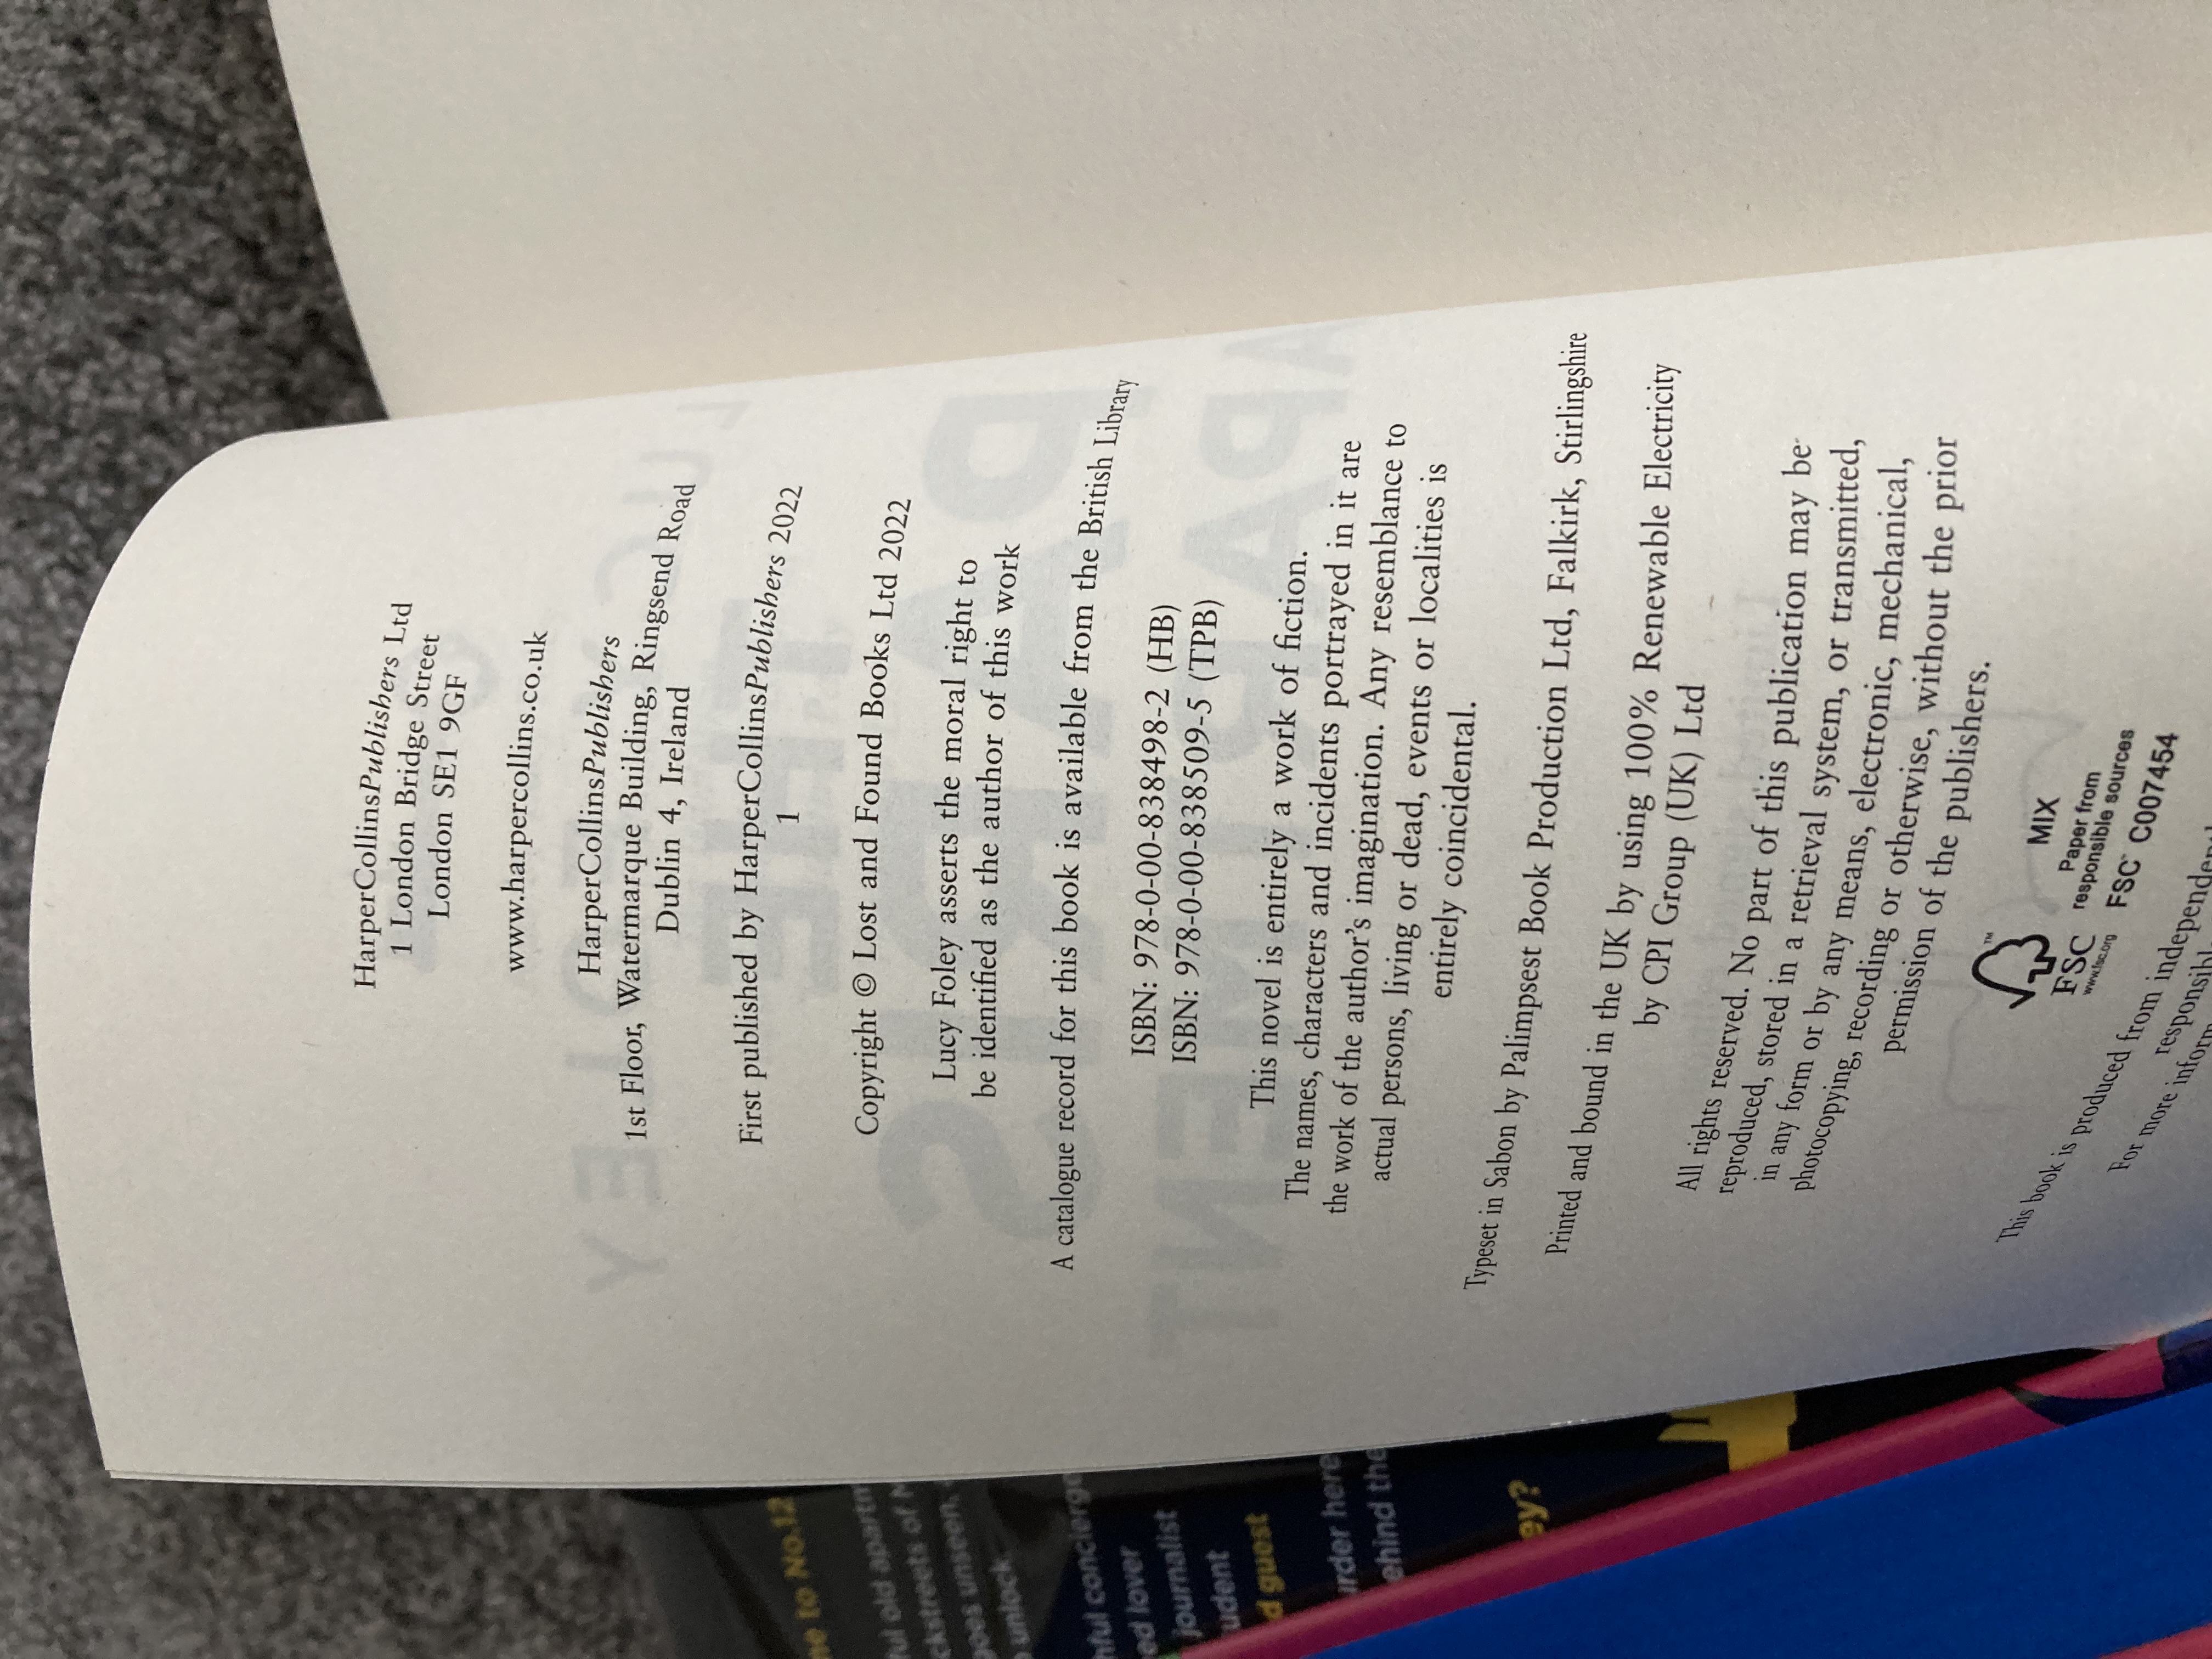 HarperCollinsPublishers Ltd
1 London Bridge Street
London SE1 9GF
www.harpercollins.co.uk
HarperCollinsPublishers
1st Floor, Watermarque Building, Ringsend Road
Dublin 4, Ireland
First published by HarperCollinsPublishers 2022
1
Copyright © Lost and Found Books Ltd 2022
Lucy Foley asserts the moral right to
be identified as the author of this work
A catalogue record for this book is available from the British Library
ISBN: 978-0-00-838498-2 (HB)
ISBN: 978-0-00-838509-5 (TPB)
This novel is entirely a work of fiction.
The names, characters and incidents portrayed in it are
the work of the author's imagination. Any resemblance to
actual persons, living or dead, events or localities is
entirely coincidental.
Typeset in Sabon by Palimpsest Book Production Ltd, Falkirk, Stirlingshire
Printed and bound in the UK by using 100% Renewable Electricity
by CPI Group (UK) Ltd
All rights reserved. No part of this publication may be
reproduced, stored in a retrieval system, or transmitted,
in any form or by any means, electronic, mechanical,
photocopying, recording or otherwise, without the prior
permission of the publishers.
FSC™
www.fsc.org
MIX
Paper from
responsible sources
FSC™ C007454
This book is produced from independent
responsibl
For more inform
me to No.12
ful old apartm
ckstreets of
goes unseen.
unlock.
concierge
ed lover
journalist
udent
d guest
urder here
ehind the
ey?